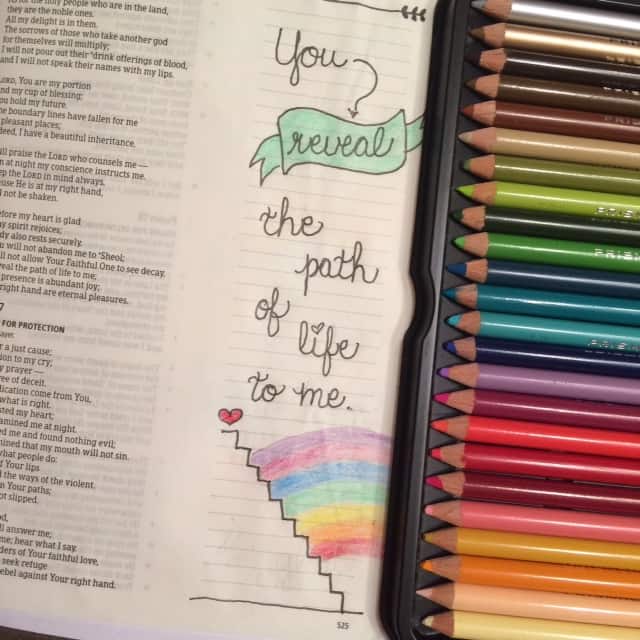 the holy people who are in the land,
they are the noble ones.
All my delight is in them.
The sorrows of those who take another god
for themselves will multiply;
I will not pour out their drink offerings of blood,
and I will not speak their names with my lips.
LORD, You are my portion
and my cup of blessing;
You hold my future.
The boundary lines have fallen for me
pleasant places;
indeed, I have a beautiful inheritance.
praise the LORD who counsels me —
at night my conscience instructs me.
keep the LORD in mind always.
He is at my right hand,
not be shaken.
my heart is glad
my spirit rejoices;
body also rests securely.
You will not abandon me to Sheol;
will not allow Your Faithful One to see decay.
reveal the path of life to me;
presence is abundant joy;
right hand are eternal pleasures.
FOR PROTECTION
a just cause;
to my cry;
prayer —
free of deceit.
come from You,
what is right.
my heart;
me at night.
me and found nothing evil;
that my mouth will not sin.
what people do:
Your lips
the ways of the violent.
Your paths;
not slipped.
answer me;
me; hear what I say.
of Your faithful love,
seek refuge
rebel against Your right hand.
You
reveal
the
path
of
life
to me.
525
PRISM
PRISM